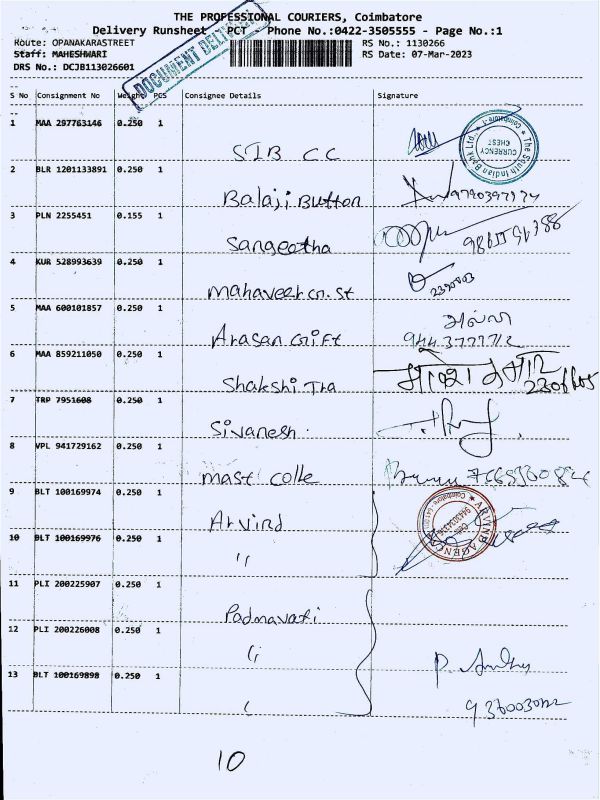 THE PROFESSIONAL COURIERS, Coimbatore
Delivery Runsheet - PCT - Phone No.:0422-3505555 - Page No.:1
Route: OPANAKARASTREET
RS No.: 1130266
Staff: MAHESHWARI
RS Date: 07-Mar-2023
DRS No.: DCJB113026601
DOCUMENT DELIVERY
S No Consignment No Weight PCS Consignee Details Signature
1 MAA 297763146 0.250 1
SIB CC
The South Indian Bank Ltd., Coimbatore
CURRENCY CHEST
2 BLR 1201133891 0.250 1
Balaji Button
3 PLN 2255451 0.155 1
Sangeetha
4 KUR 528993639 0.250 1
Mahaveer cn. st
5 MAA 600101857 0.250 1
Arasan Gift
6 MAA 859211050 0.250 1
Shakshi Tra
7 TRP 7951608 0.250 1
Sivanesh.
8 VPL 941729162 0.250 1
mast colle
9 BLT 100169974 0.250 1
Arvind
ARVIND AGENCY
10 BLT 100169976 0.250 1
"
11 PLI 200225907 0.250 1
Padmavati
12 PLI 200226008 0.250 1
"
13 BLT 100169898 0.250 1
10